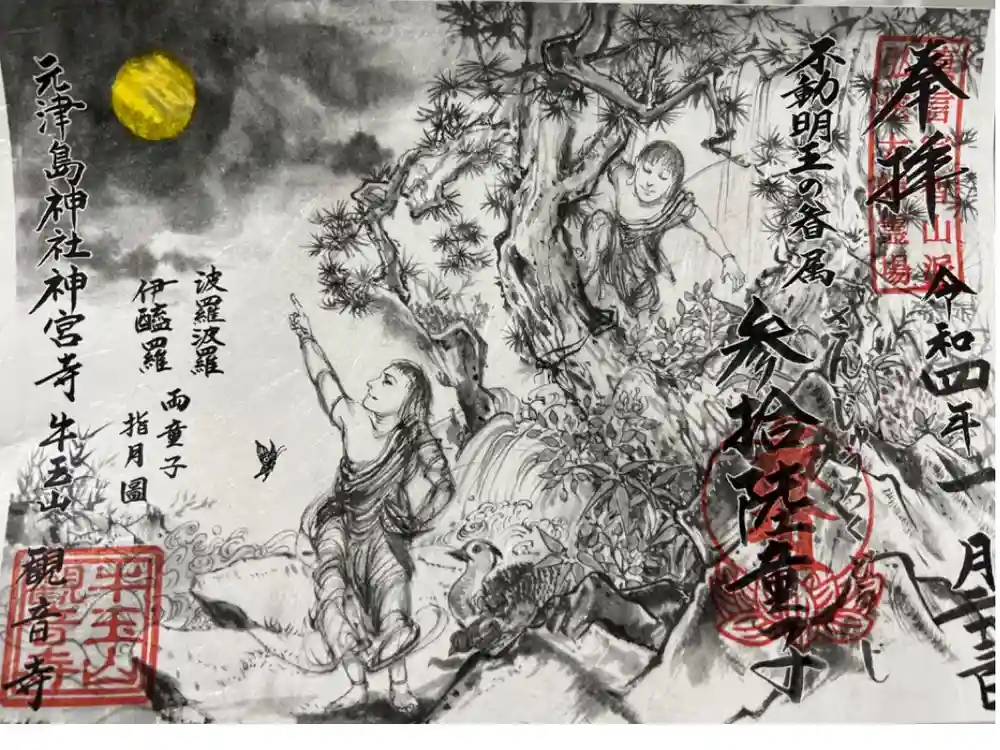 奉拝
令和四年一月二十三日
不動明王の眷属
さんじゅうろくどうじ
参拾陸童子
波羅波羅
伊醯羅
両童子
指月圖
元津島神社神宮寺 牛玉山
觀音寺
牛玉山
觀音寺